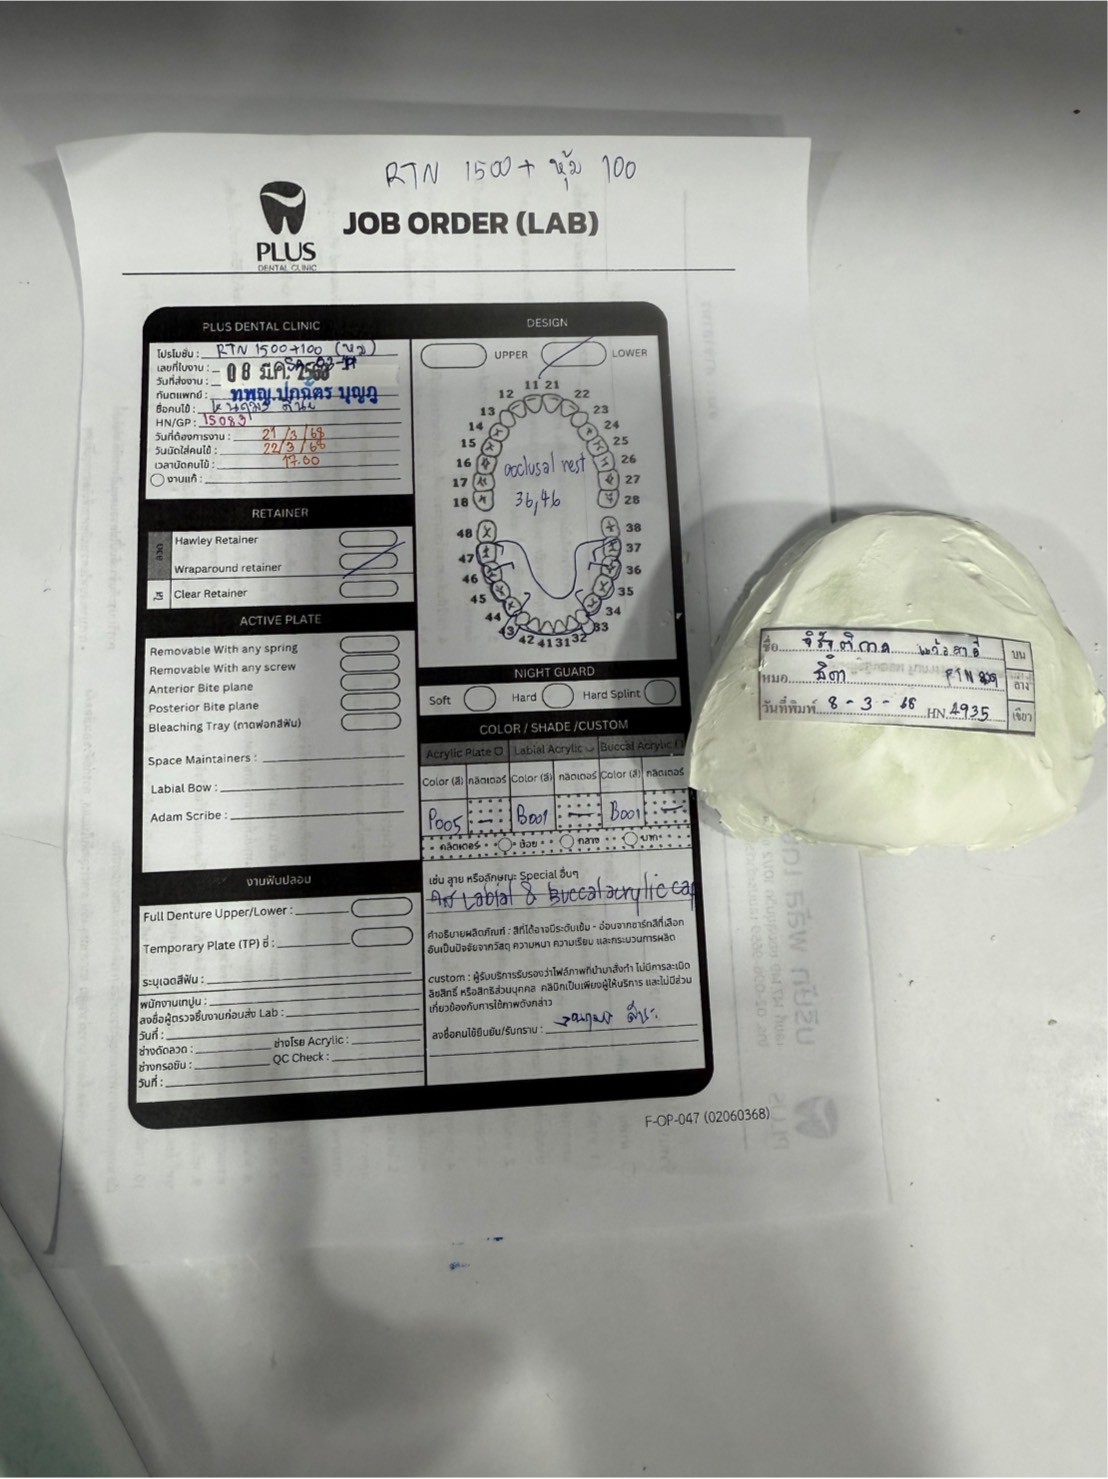 RTN 1500 + หุ้ม 100
PLUS
DENTAL CLINIC
JOB ORDER (LAB)
PLUS DENTAL CLINIC
โปรโมชัน : RTN 1500+100 (หุ้ม)
เลขที่ใบงาน :
วันที่ส่งงาน : 08 มี.ค. 2568
ทันตแพทย์ : ทพญ.ปภฉัตร บุญภู
ชื่อคนไข้ :
HN/GP : 15083
วันที่ต้องการงาน : 21/3/68
วันนัดใส่คนไข้ : 22/3/68
เวลานัดคนไข้ : 17.00
งานแก้ :
RETAINER
ลวด
Hawley Retainer
Wraparound retainer
ใส
Clear Retainer
ACTIVE PLATE
Removable With any spring
Removable With any screw
Anterior Bite plane
Posterior Bite plane
Bleaching Tray (ถาดฟอกสีฟัน)
Space Maintainers :
Labial Bow :
Adam Scribe :
งานฟันปลอม
Full Denture Upper/Lower :
Temporary Plate (TP) ซี่ :
ระบุเฉดสีฟัน :
พนักงานเทปูน :
ลงชื่อผู้ตรวจชิ้นงานก่อนส่ง Lab :
วันที่ :
ช่างดัดลวด : ช่างโรย Acrylic :
ช่างกรอขัด : QC Check :
วันที่ :
DESIGN
UPPER LOWER
11 21
12 22
13 23
14 24
15 25
16 26
17 27
18 28
occlusal rest
36,46
48 38
47 37
46 36
45 35
44 34
43 33
42 41 31 32
NIGHT GUARD
Soft Hard Hard Splint
COLOR / SHADE /CUSTOM
Acrylic Plate Labial Acrylic Buccal Acrylic
Color (สี) กลิตเตอร์ Color (สี) กลิตเตอร์ Color (สี) กลิตเตอร์
P005 — B001 — B001 —
กลิตเตอร์ น้อย กลาง มาก
เช่น ลาย หรือลักษณะ Special อื่นๆ
Labial & Buccal acrylic cap
คำอธิบายผลิตภัณฑ์ : สีที่ได้อาจมีระดับเข้ม - อ่อนจากชาร์ทสีที่เลือก
อันเป็นปัจจัยจากวัสดุ ความหนา ความเรียบ และกระบวนการผลิต
custom : ผู้รับบริการรับรองว่าไฟล์ภาพที่นำมาสั่งทำ ไม่มีการละเมิด
ลิขสิทธิ์ หรือสิทธิส่วนบุคคล คลินิกเป็นเพียงผู้ให้บริการ และไม่มีส่วน
เกี่ยวข้องกับการใช้ภาพดังกล่าว
ลงชื่อคนไข้ยืนยัน/รับทราบ :
F-OP-047 (02060368)
ชื่อ จิรัฐติกาล แก้วสารี บน
หมอ ธิดา RTN ลวด ล่าง
วันที่พิมพ์ 8 - 3 - 68 HN 4935 เขียว